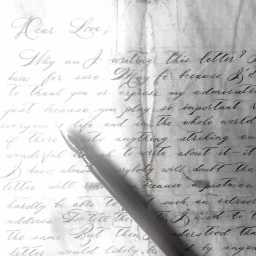 Dear Love,
Why am I writing this letter? I
know for sure. May be because I'd
to thank you or express my admiratio
just because you play so important
everyone's life and in the whole world
if there is anything striking an
wonderful to write about it - it
I know almost everybody will doubt tha
letter will because a postman
hardly be able to such an extra
address. To tell the I used to t
the same. But then I understood tha
letter would likely be by anyo